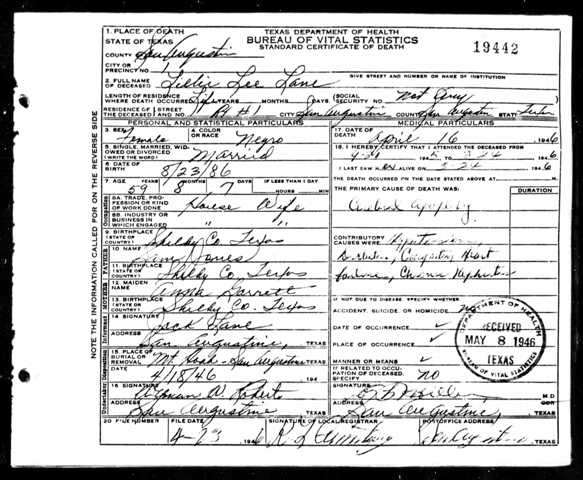 TEXAS DEPARTMENT OF HEALTH
BUREAU OF VITAL STATISTICS
STANDARD CERTIFICATE OF DEATH
19442
1. PLACE OF DEATH
STATE OF TEXAS
COUNTY OF San Augustine
CITY OR
PRECINCT NO. 1
GIVE STREET AND NUMBER OR NAME OF INSTITUTION
2. FULL NAME OF DECEASED Lee Lane
LENGTH OF RESIDENCE WHERE DEATH OCCURRED YEARS MONTHS DAYS
SOCIAL SECURITY NO. Not Any
RESIDENCE OF THE DECEASED STREET AND NO. CITY San Augustine COUNTY San Augustine STATE Texas
PERSONAL AND STATISTICAL PARTICULARS
3. SEX Female
4. COLOR OR RACE Negro
5. SINGLE, MARRIED, WIDOWED OR DIVORCED (WRITE THE WORD) Married
6. DATE OF BIRTH 8/23/86
7. AGE YEARS MONTHS DAYS IF LESS THAN 1 DAY
59 8 7 HOURS MIN
8A. TRADE, PROFESSION OR KIND OF WORK DONE House Wife
8B. INDUSTRY OR BUSINESS IN WHICH ENGAGED " "
9. BIRTHPLACE (STATE OR COUNTRY) Shelby Co. Texas
FATHER
10. NAME
11. BIRTHPLACE (STATE OR COUNTRY) Shelby Co. Texas
MOTHER
12. MAIDEN NAME Anna Garrett
13. BIRTHPLACE (STATE OR COUNTRY) Shelby Co. Texas
Informant
14. SIGNATURE Jack Lane
ADDRESS San Augustine, TEXAS
15. PLACE OF BURIAL OR REMOVAL San Augustine TEXAS
DATE 4/18/46 194
16. SIGNATURE Roberts
ADDRESS San Augustine TEXAS
MEDICAL PARTICULARS
17. DATE OF DEATH April 16 1946
18. I HEREBY CERTIFY THAT I ATTENDED THE DECEASED FROM
I LAST SAW ALIVE ON 1946
THE DEATH OCCURRED ON THE DATE STATED ABOVE AT M.
THE PRIMARY CAUSE OF DEATH WAS: DURATION
Cerebral Apoplexy
CONTRIBUTORY CAUSES WERE: Hypertension
Congestive Heart
Failure, Chronic Nephritis
IF NOT DUE TO DISEASE, SPECIFY WHETHER:
ACCIDENT, SUICIDE OR HOMICIDE no
DATE OF OCCURRENCE ✓
PLACE OF OCCURRENCE ✓
MANNER OR MEANS ✓
IF RELATED TO OCCUPATION OF DECEASED, SPECIFY no
SIGNATURE M.D. OR
ADDRESS San Augustine, TEXAS
DEPARTMENT OF HEALTH
RECEIVED
MAY 8 1946
TEXAS
BUREAU OF VITAL STATISTICS
20. FILE NUMBER FILE DATE SIGNATURE OF LOCAL REGISTRAR POSTOFFICE ADDRESS
4-23 1946 San Augustine TEXAS
NOTE THE INFORMATION CALLED FOR ON THE REVERSE SIDE